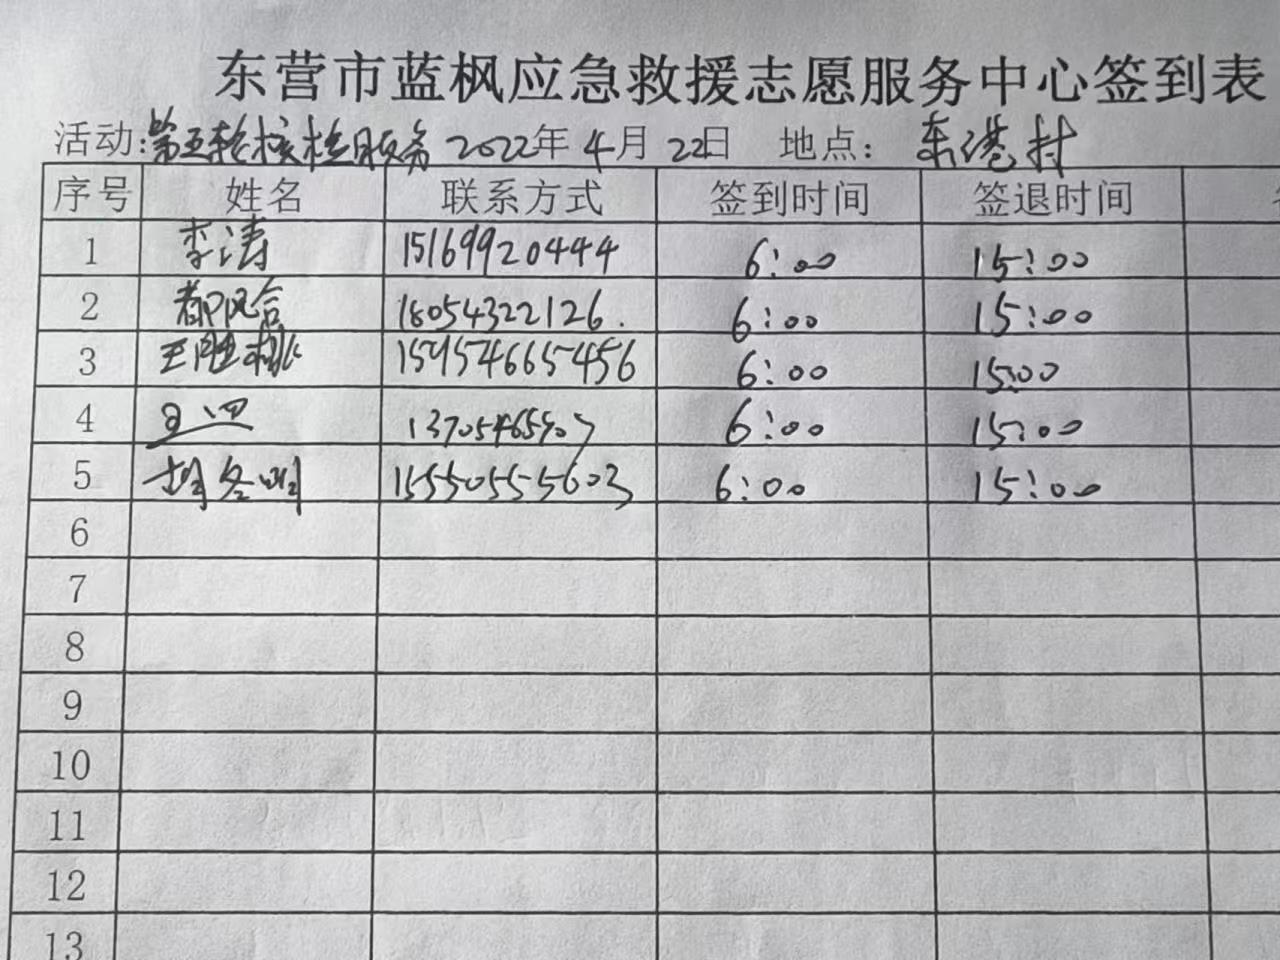 东营市蓝枫应急救援志愿服务中心签到表
活动:第五轮核检服务 2022年 4月 22日 地点: 东港村
序号 姓名 联系方式 签到时间 签退时间
1 李涛 15169920444 6:00 15:00
2 都风合 18054322126. 6:00 15:00
3 王胜 15954665456 6:00 15:00
4 6:00 15:00
5 15550555603 6:00 15:00
6
7
8
9
10
11
12
13